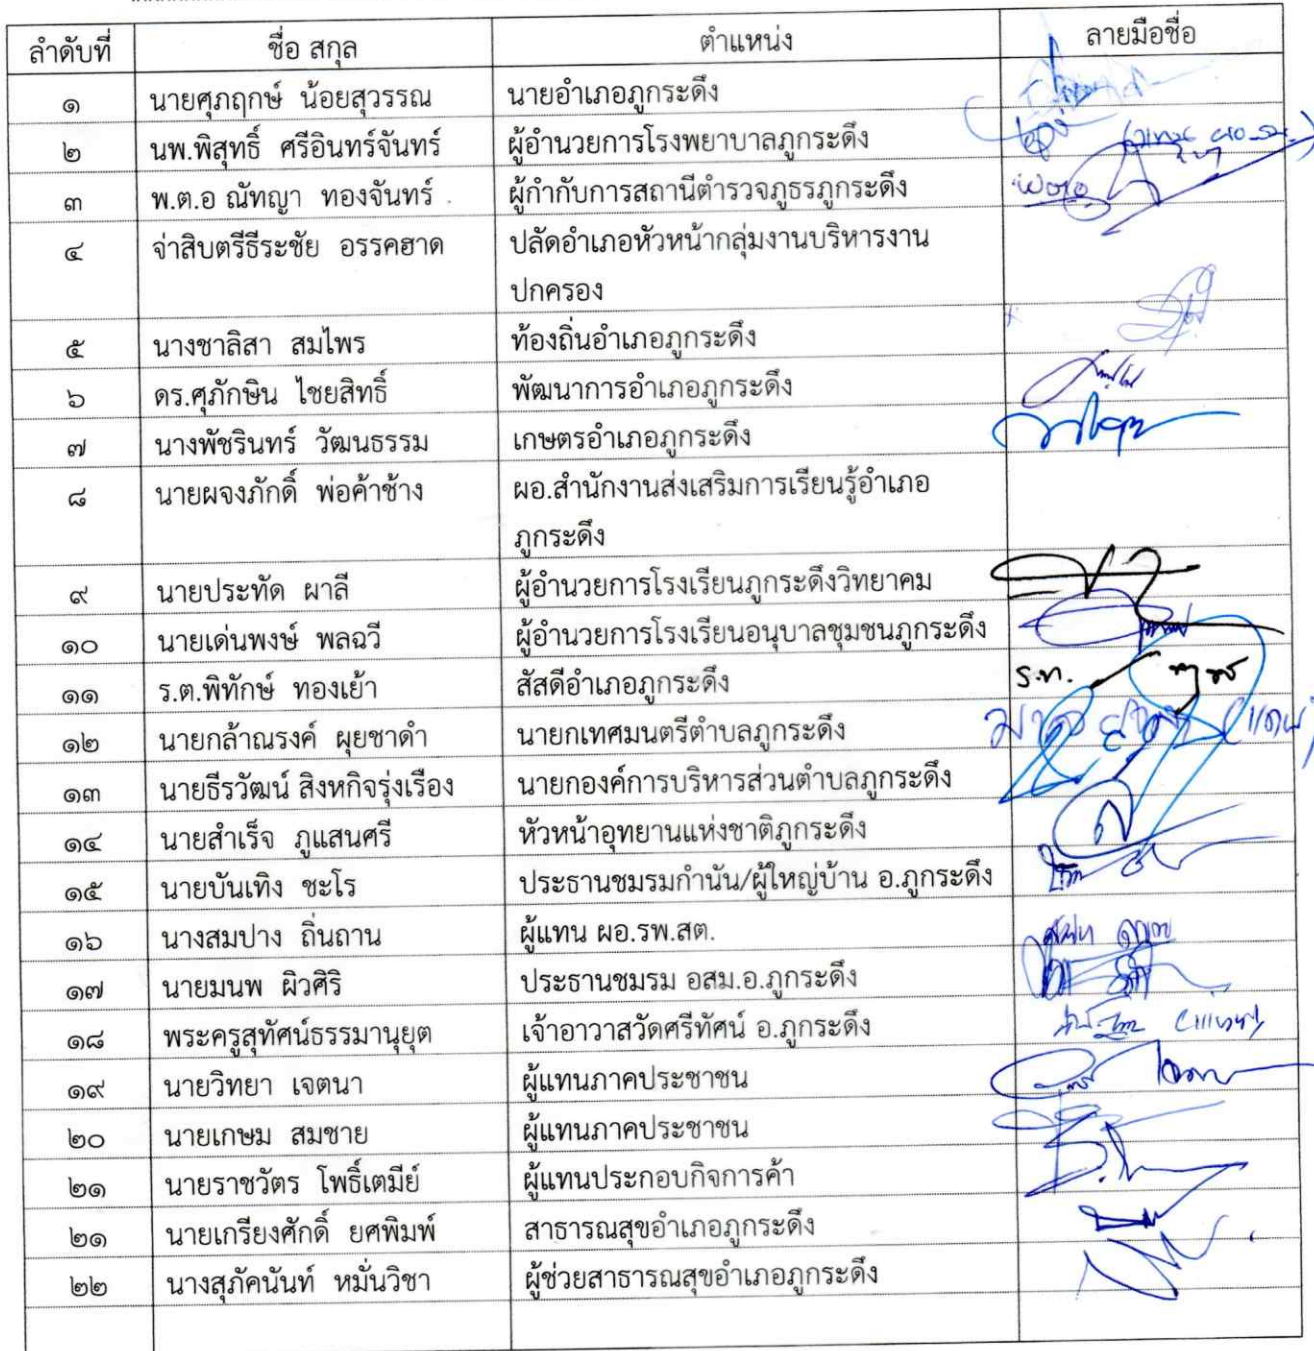 ลำดับที่ ชื่อ สกุล ตำแหน่ง ลายมือชื่อ
๑ นายศุภฤกษ์ น้อยสุวรรณ นายอำเภอภูกระดึง
๒ นพ.พิสุทธิ์ ศรีอินทร์จันทร์ ผู้อำนวยการโรงพยาบาลภูกระดึง
๓ พ.ต.อ ณัทญา ทองจันทร์ ผู้กำกับการสถานีตำรวจภูธรภูกระดึง
๔ จ่าสิบตรีธีระชัย อรรคฮาด ปลัดอำเภอหัวหน้ากลุ่มงานบริหารงาน
ปกครอง
๕ นางชาลิสา สมไพร ท้องถิ่นอำเภอภูกระดึง
๖ ดร.ศุภักษิน ไชยสิทธิ์ พัฒนาการอำเภอภูกระดึง
๗ นางพัชรินทร์ วัฒนธรรม เกษตรอำเภอภูกระดึง
๘ นายผจงภักดิ์ พ่อค้าช้าง ผอ.สำนักงานส่งเสริมการเรียนรู้อำเภอ
ภูกระดึง
๙ นายประทัด ผาลี ผู้อำนวยการโรงเรียนภูกระดึงวิทยาคม
๑๐ นายเด่นพงษ์ พลฉวี ผู้อำนวยการโรงเรียนอนุบาลชุมชนภูกระดึง
๑๑ ร.ต.พิทักษ์ ทองเย้า สัสดีอำเภอภูกระดึง ร.ท.
๑๒ นายกล้าณรงค์ ผุยชาดำ นายกเทศมนตรีตำบลภูกระดึง
๑๓ นายธีรวัฒน์ สิงหกิจรุ่งเรือง นายกองค์การบริหารส่วนตำบลภูกระดึง
๑๔ นายสำเร็จ ภูแสนศรี หัวหน้าอุทยานแห่งชาติภูกระดึง
๑๕ นายบันเทิง ชะโร ประธานชมรมกำนัน/ผู้ใหญ่บ้าน อ.ภูกระดึง
๑๖ นางสมปาง ถิ่นถาน ผู้แทน ผอ.รพ.สต.
๑๗ นายมนพ ผิวศิริ ประธานชมรม อสม.อ.ภูกระดึง
๑๘ พระครูสุทัศน์ธรรมานุยุต เจ้าอาวาสวัดศรีทัศน์ อ.ภูกระดึง
๑๙ นายวิทยา เจตนา ผู้แทนภาคประชาชน
๒๐ นายเกษม สมชาย ผู้แทนภาคประชาชน
๒๑ นายราชวัตร โพธิ์เตมีย์ ผู้แทนประกอบกิจการค้า
๒๑ นายเกรียงศักดิ์ ยศพิมพ์ สาธารณสุขอำเภอภูกระดึง
๒๒ นางสุภัคนันท์ หมั่นวิชา ผู้ช่วยสาธารณสุขอำเภอภูกระดึง